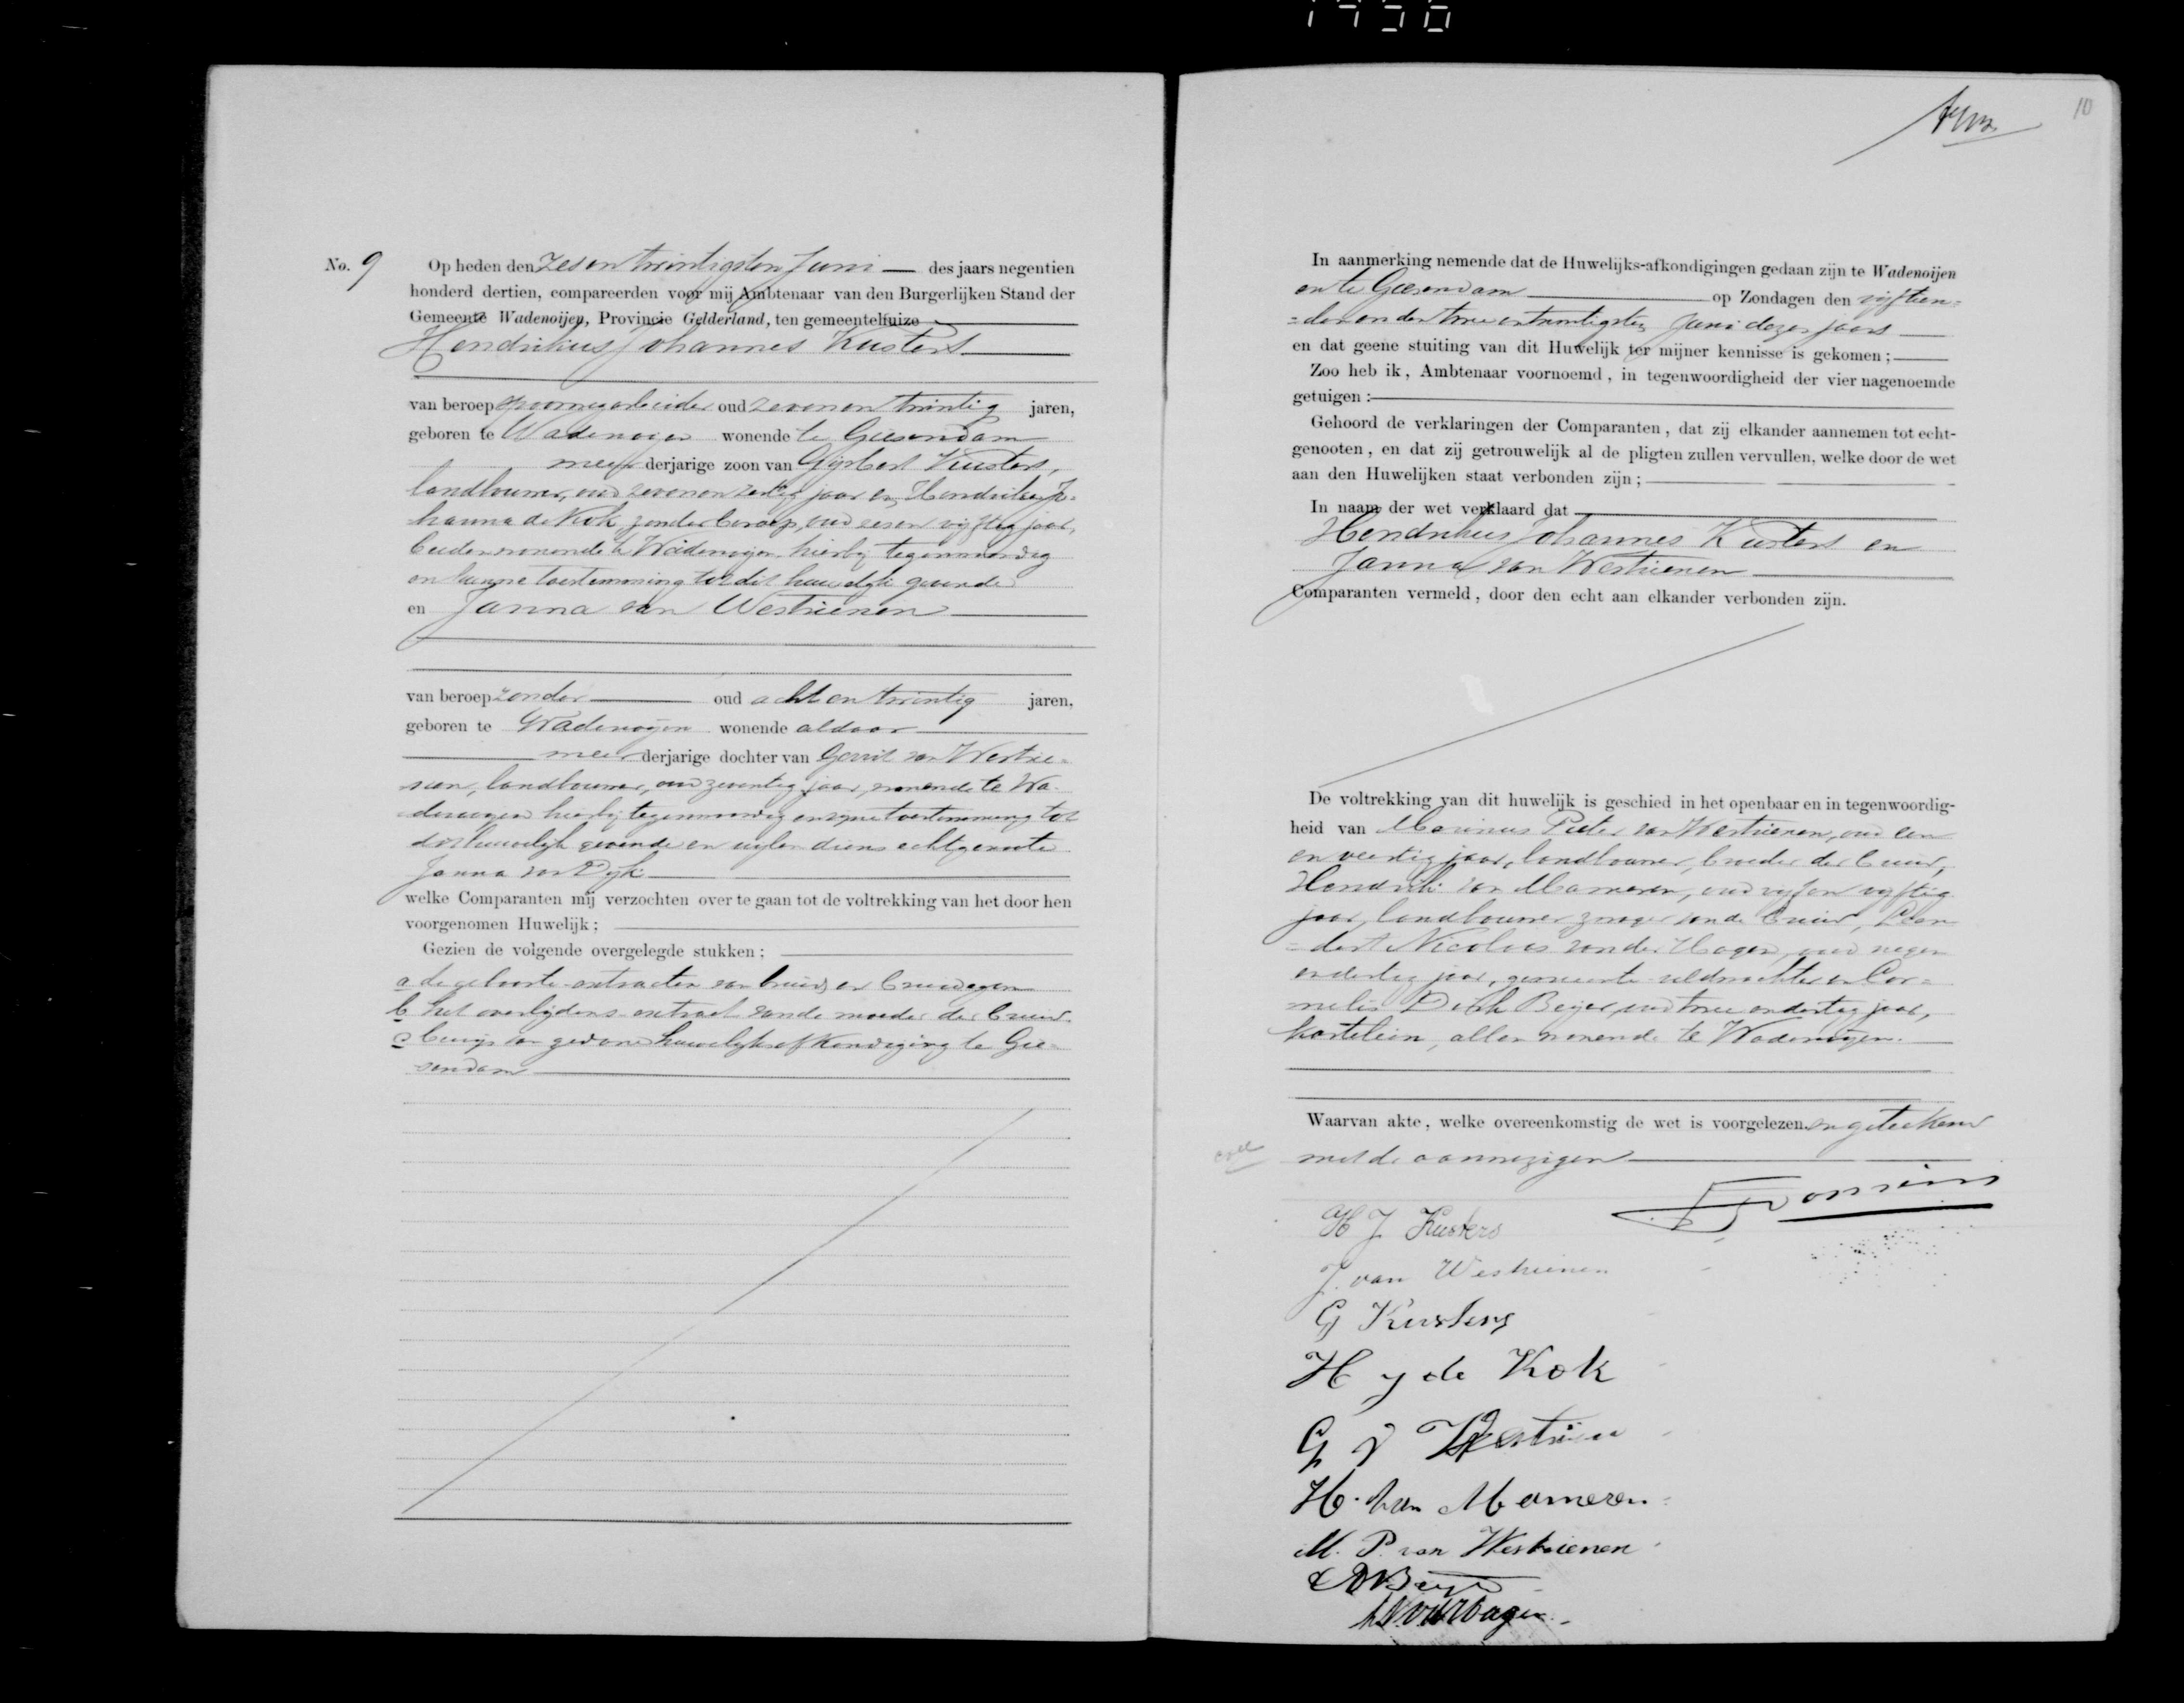 10
No. 9 Op heden den Zes en twintigsten Juni des jaars negentien
honderd dertien, compareerden voor mij Ambtenaar van den Burgerlijken Stand der
Gemeente Wadenoijen, Provincie Gelderland, ten gemeentehuize
Hendrikus Johannes Kusters
van beroep spoorwegarbeider oud zeven en twintig jaren,
geboren te Wadenoijen wonende te Giesendam
meerderjarige zoon van Gijsbert Kusters,
landbouwer, oud zeven en zestig jaar en Hendrika Jo=
hanna de Kok, zonder beroep, oud zes en vijftig jaar,
beiden wonende te Wadenoijen hierbij tegenwoordig
en hunne toestemming tot dit huwelijk gevende
en Janna van Westrienen
van beroep zonder oud acht en twintig jaren,
geboren te Wadenoijen wonende aldaar
meerderjarige dochter van Gerrit van Westrie=
nen, landbouwer, oud zeventig jaar, wonende te Wa=
denoijen hierbij tegenwoordig en zijne toestemming tot
dit huwelijk gevende en wijlen diens echtgenoote
Janna van Dijk
welke Comparanten mij verzochten over te gaan tot de voltrekking van het door hen
voorgenomen Huwelijk;
Gezien de volgende overgelegde stukken:
a de geboorte-extracten van bruid en bruidegom
b het overlijdens-extract van de moeder der bruid
c bewijs van gedane huwelijksafkondiging te Gie=
sendam
In aanmerking nemende dat de Huwelijks-afkondigingen gedaan zijn te Wadenoijen
en te Giesendam op Zondagen den vijftien=
den en den twee en twintigsten Juni dezer jaars
en dat geene stuiting van dit Huwelijk ter mijner kennisse is gekomen;
Zoo heb ik, Ambtenaar voornoemd, in tegenwoordigheid der vier nagenoemde
getuigen:
Gehoord de verklaringen der Comparanten, dat zij elkander aannemen tot echt-
genooten, en dat zij getrouwelijk al de pligten zullen vervullen, welke door de wet
aan den Huwelijken staat verbonden zijn;
In naam der wet verklaard dat
Hendrikus Johannes Kusters en
Janna van Westrienen
Comparanten vermeld, door den echt aan elkander verbonden zijn.
De voltrekking van dit huwelijk is geschied in het openbaar en in tegenwoordig-
heid van Marinus Pieter van Westrienen, oud een
en veertig jaar, landbouwer, broeder der bruid,
Hendrik van Mameren, oud vijf en vijftig
jaar, landbouwer zwager van de bruid, Leen
=dert Nicolaas van der Hagen, oud negen
en dertig jaar, gemeente-veldwachter en Cor=
nelis Dirk Beijer, oud twee en dertig jaar,
kastelein, allen wonende te Wadenoijen.
Waarvan akte, welke overeenkomstig de wet is voorgelezen en geteekend
met de aanwezigen
H J Kusters
J. van Westrienen
G Kusters
H J de Kok
G v Westrien
H. van Mameren
M. P. van Westrienen
C D Beijer
L N v d Hagen